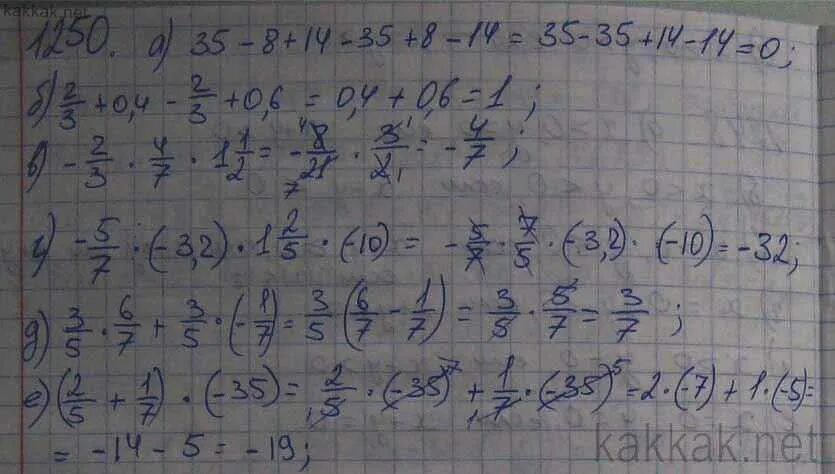 kakkak.net
1250. а) 35 - 8 + 14 - 35 + 8 - 14 = 35 - 35 + 14 - 14 = 0;
б) 2/3 + 0,4 - 2/3 + 0,6 = 0,4 + 0,6 = 1;
в) - 2/3 · 4/7 · 1 1/2 = - 8/21 · 3/2 = - 4/7;
г) - 5/7 · (-3,2) · 1 2/5 · (-10) = - 5/7 · 7/5 · (-3,2) · (-10) = -32;
д) 3/5 · 6/7 + 3/5 · (- 1/7) = 3/5 (6/7 - 1/7) = 3/5 · 5/7 = 3/7;
е) (2/5 + 1/7) · (-35) = 2/5 · (-35)⁷ + 1/7 · (-35)⁵ = 2 · (-7) + 1 · (-5) =
= -14 - 5 = -19;
kakkak.net